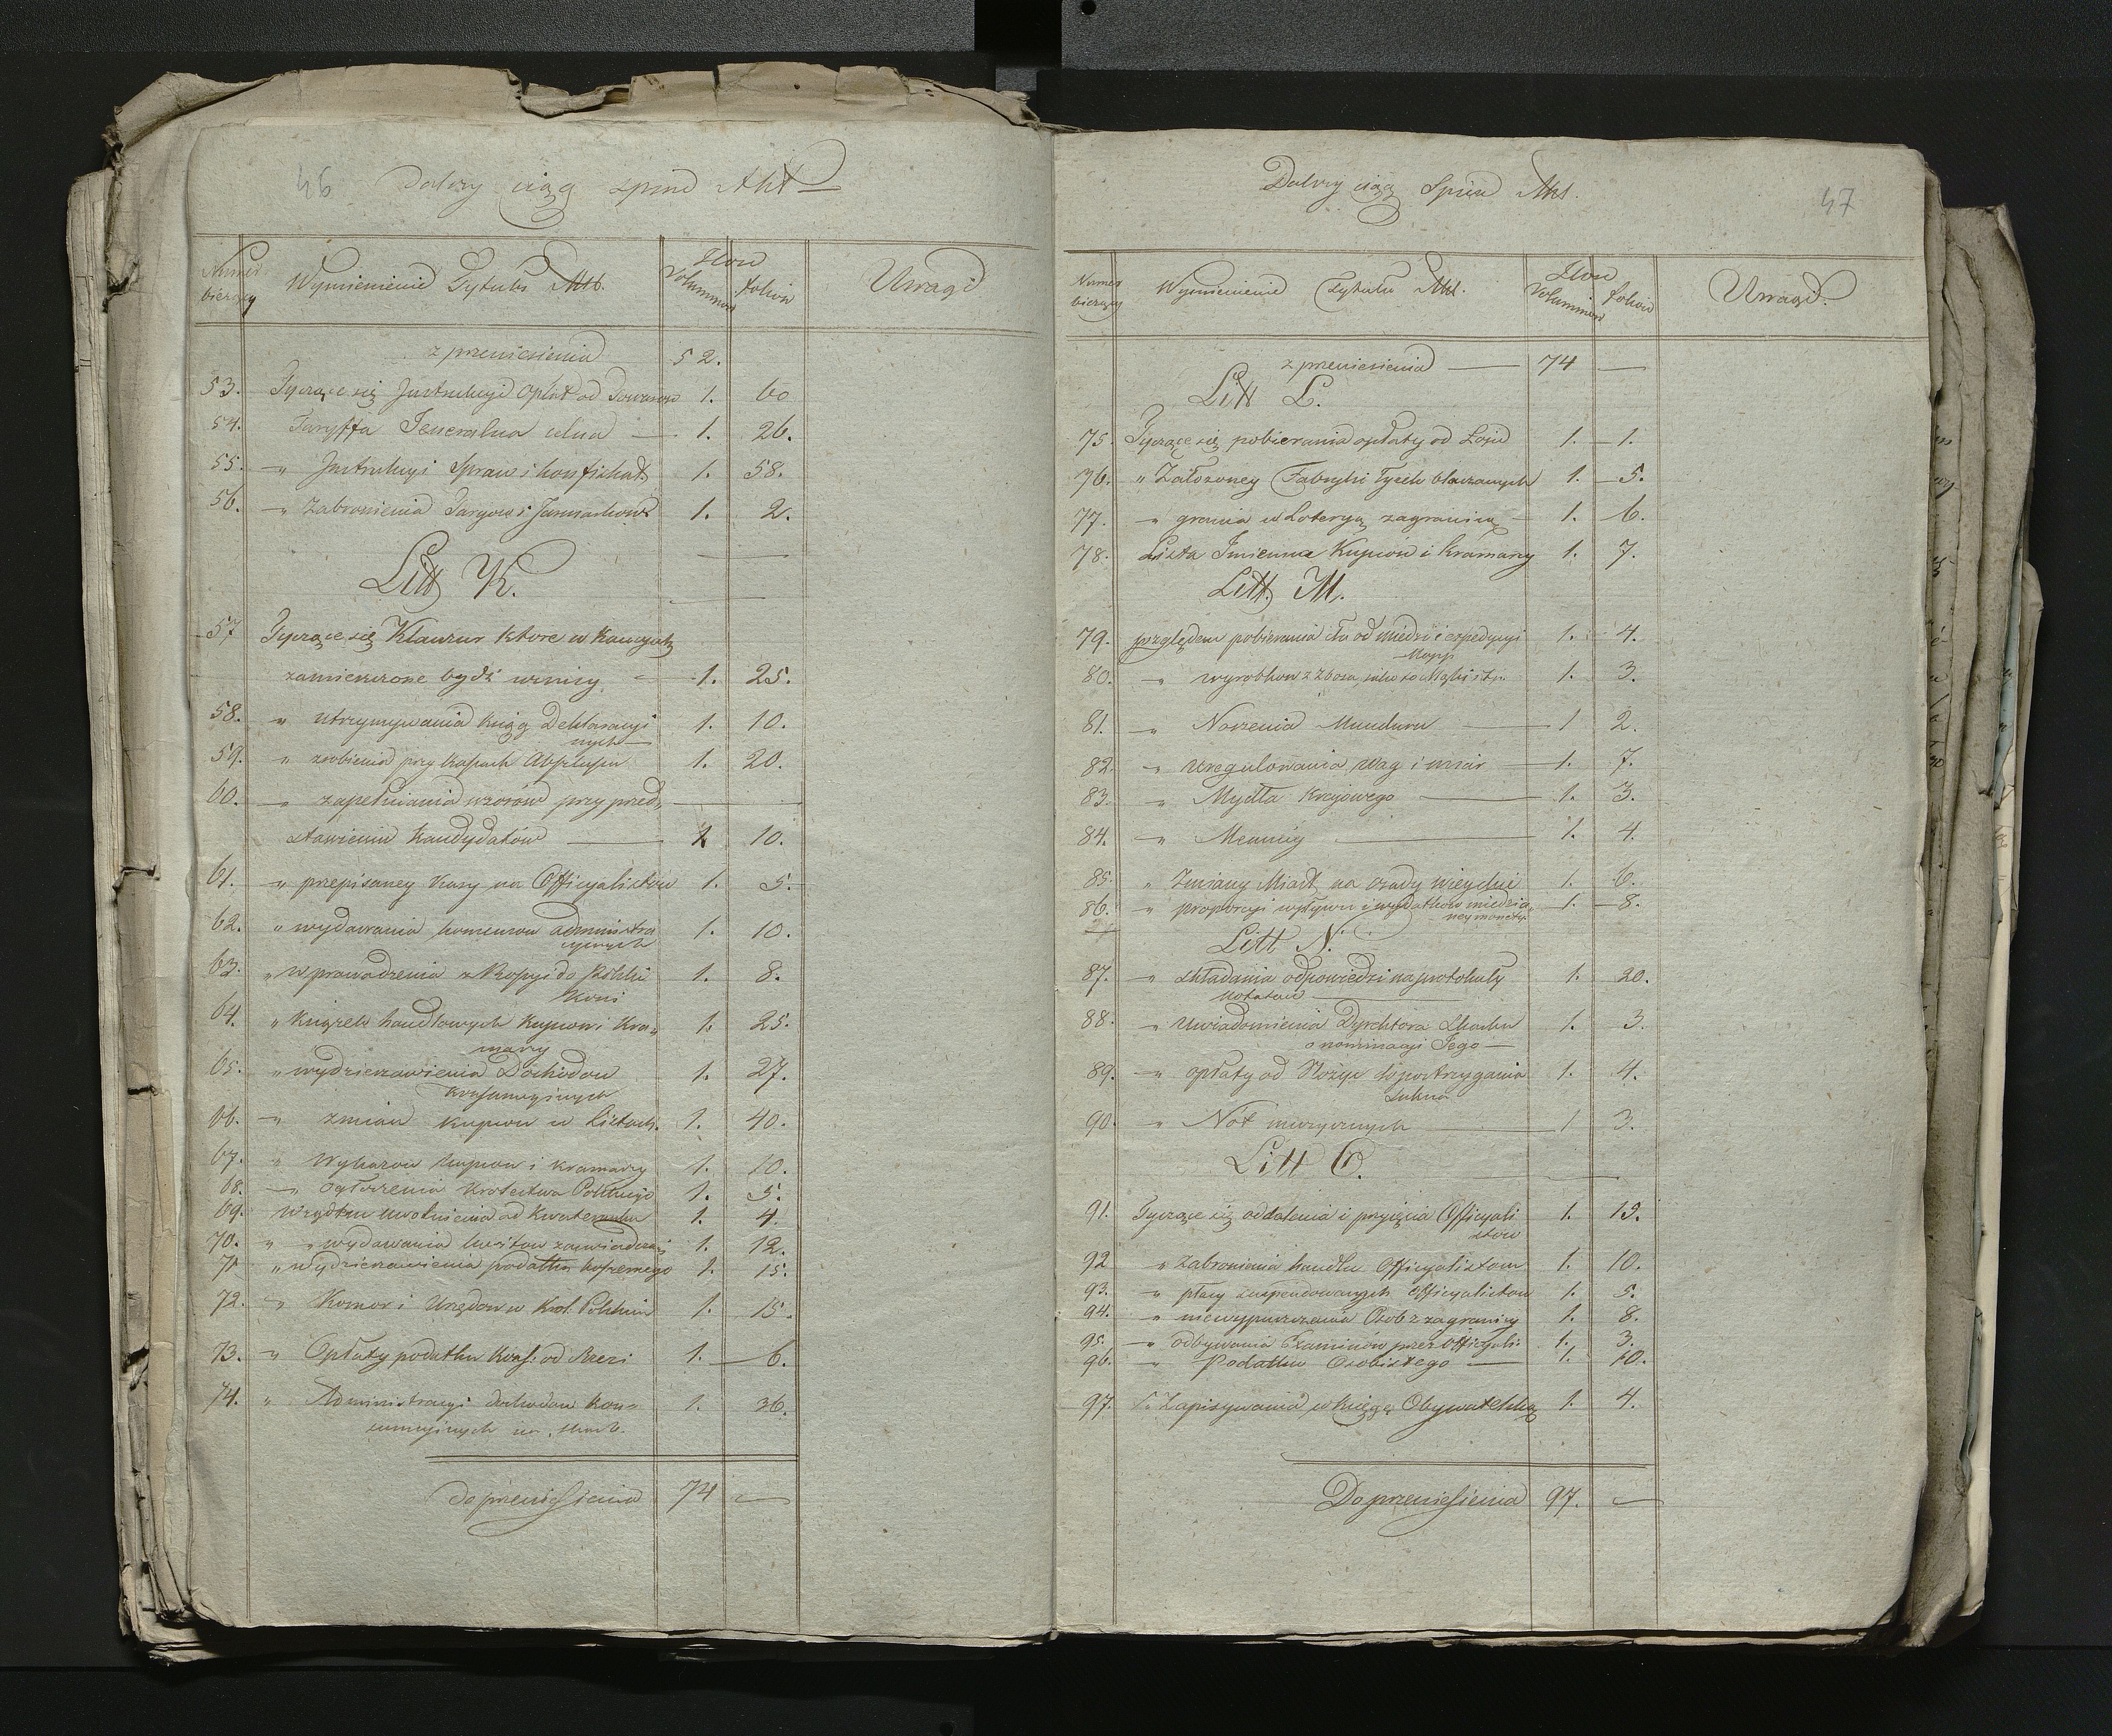 46 Dalszy ciąg spisu Akt
Numer bierzący Wymienienie Tytułu Akt. Ilość Voluminow foliow Uwagi
z przeniesienia 52.
53. Tyczące się Instrukcyi opłat od Towarow 1. 60
54. Taryffa Jeneralna celna 1. 26.
55. " Instrukcyi Spraw i konfiskat 1. 58.
56. " Zabronienia Targow i Jarmarkow 1. 2.
Litt K.
57 Tyczące się Klauzur ktore w Kaucyach
zamieszczone bydź winny 1. 25.
58. " utrzymywania ksiąg Deklaracyi
nych 1. 10.
59. " zrobienia przy kassach Abszlusu 1. 20.
60. " zapełniania wzorów przy przed-
stawieniu kandydatów 1 10.
61. " przepisaney kary na Officyalistow 1. 5.
62. " wydawania konsensow administra
cyinych 1. 10.
63. " wprowadzenia z Rossyi do Polski
Koni 1. 8.
64. " książek handlowych kupcow i kra-
marzy 1. 25.
65. " wydzierzawienia Dochodow
konsumcyinych 1. 27.
66. " zmian kupcow w listach. 1. 40.
67. " Wykazow kupcow i kramarzy 1. 10.
68. " ogłoszenia Krolestwa Polskiego 1. 5.
69. Względem uwolnienia od kwaterunku 1. 4.
70. " " wydawania kwitow zaswiadcza 1. 12.
71 " wydzierzawienia podatku koszernego 1. 15.
72. " Komor i Urzędow w Krol. Polskim 1. 15.
73. " Opłaty podatku Kons. od Rzezi 1. 6.
74. " Administracyi dochodow kon-
sumcyinych na skarb. 1. 36.
Do przeniesienia 74 —
Dalszy ciąg Spisu Akt. 47
Numer bierzący Wymienienie Tytułu Akt. Ilość Voluminow foliow Uwagi.
z przeniesienia — 74 —
Litt L.
75. Tyczące się pobierania opłaty od Łoju 1. 1.
76. " Założoney Fabryki Łyżek blaszanych 1. 5.
77. " grania w Loteryą zagraniczną 1. 6.
78. Lista Imienna Kupców i kramarzy 1. 7.
Litt. M.
79. względem pobierania cła od miedzi i expedycyi
Mapp 1. 4.
80. " wyrobkow z zboza, jako to Mąki i t.p. 1. 3.
81. " Noszenia Munduru 1 2.
82. " uregulowania wag i miar 1. 7.
83. " Mydła krajowego 1. 3.
84. " Mennicy 1. 4.
85. " Zmiany Miast na osady wieyskie 1. 6.
86. " proporcyi wpływu i wydatkow miedzia-
ney monety. 1. 8.
Litt N.
87. " składania odpowiedzi na protokuły
Notatow 1. 20.
88. " Uwiadomienia Dyrektora Skarbu
o nominacyi Jego 1. 3.
89. " opłaty od Nożyc do postrzygania
Sukna 1. 4.
90. " Nót muzycznych 1 3.
Litt O.
91. Tyczące się oddalenia i przyięcia Officyali
stow 1. 15.
92 " Zabronienia handlu Officyalistom 1. 10.
93. " płacy suspendowanych Officyalistow 1. 5.
94. " niewypuszczenia Osob z zagranicy 1. 8.
95. " odbywania Examinów przez Officyali: 1. 3.
96. " Podatku Osobistego 1. 10.
97. " Zapisywania w księgę Obywatelską 1. 4.
Do przeniesienia 97. —